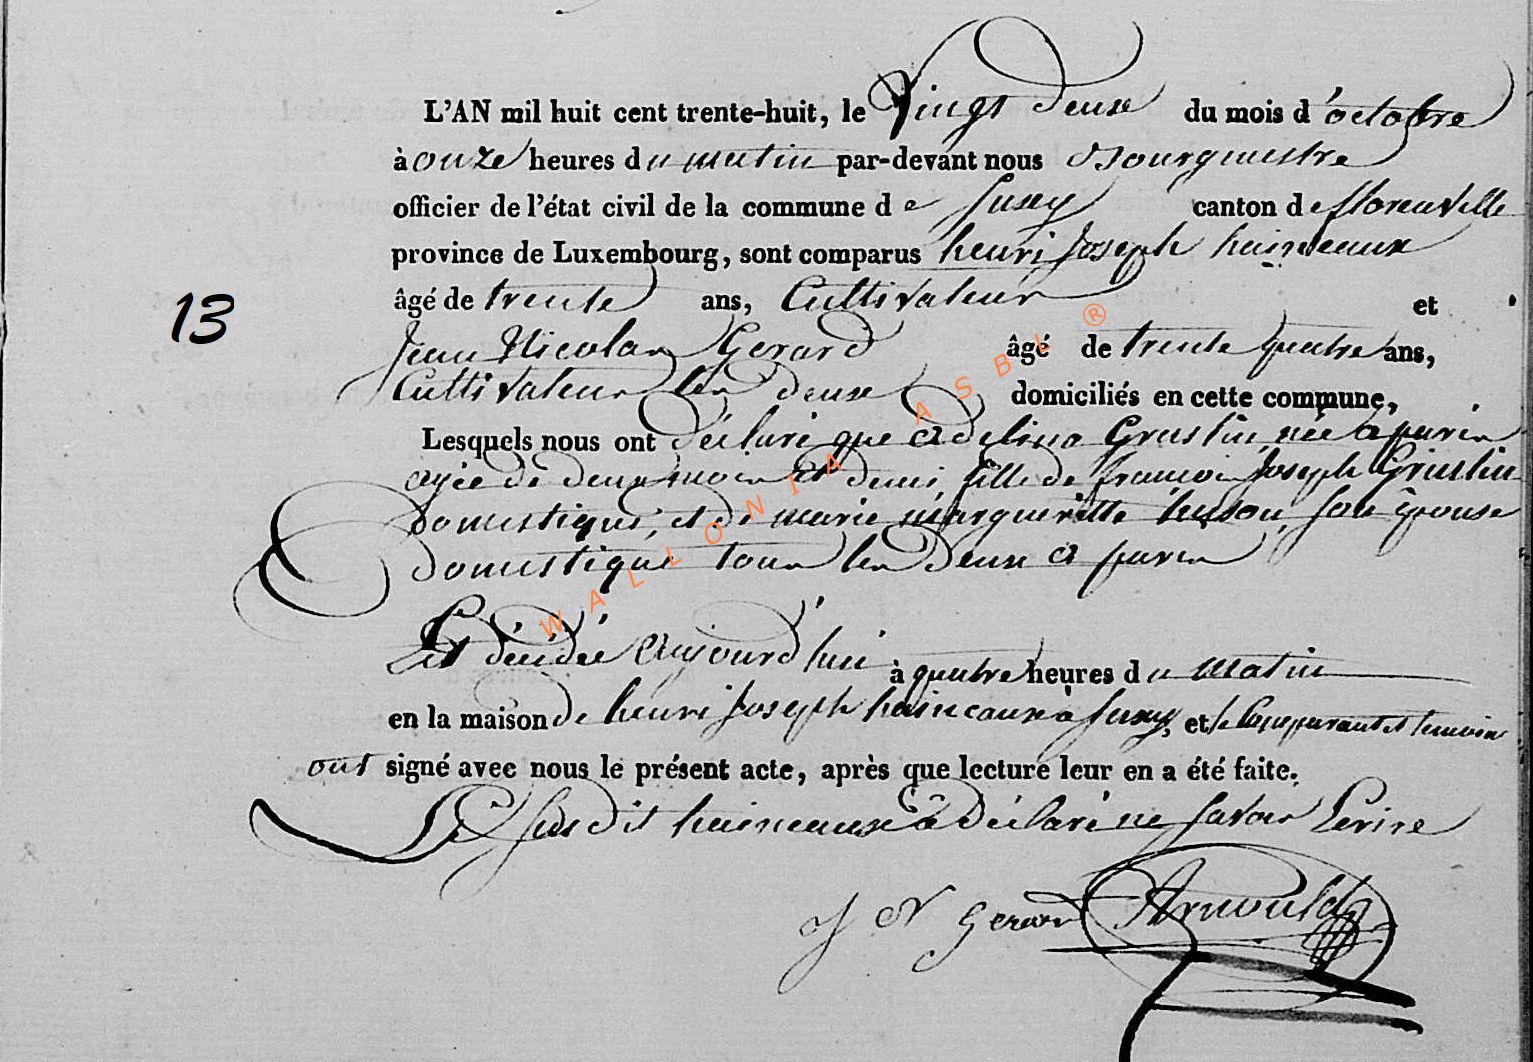 L'AN mil huit cent trente-huit, le Vingt deux du mois d'octobre
à onze heures du matin par-devant nous Bourgmestre
officier de l'état civil de la commune de Suxy canton de florenville
province de Luxembourg, sont comparus henri Joseph haineaux
âgé de trente ans, Cultivateur et
13
Jean Nicolas Gerard âgé de trente quatre ans,
Cultivateur les deux domiciliés en cette commune,
Lesquels nous ont déclaré que Adelina née à paris
agée de deux mois et demi fille de francois Joseph
domestique, et de marie margueritte son épouse
domestique tous les deux a paris
Est décédée aujourd'hui à quatre heures du matin
en la maison de henri Joseph haineaux à Suxy, et le Comparant et temoin
ont signé avec nous le présent acte, après que lecture leur en a été faite.
Le susdit haineaux a déclaré ne savoir Ecrire
J N Gerard Arnould
WALLONIA ASBL ®